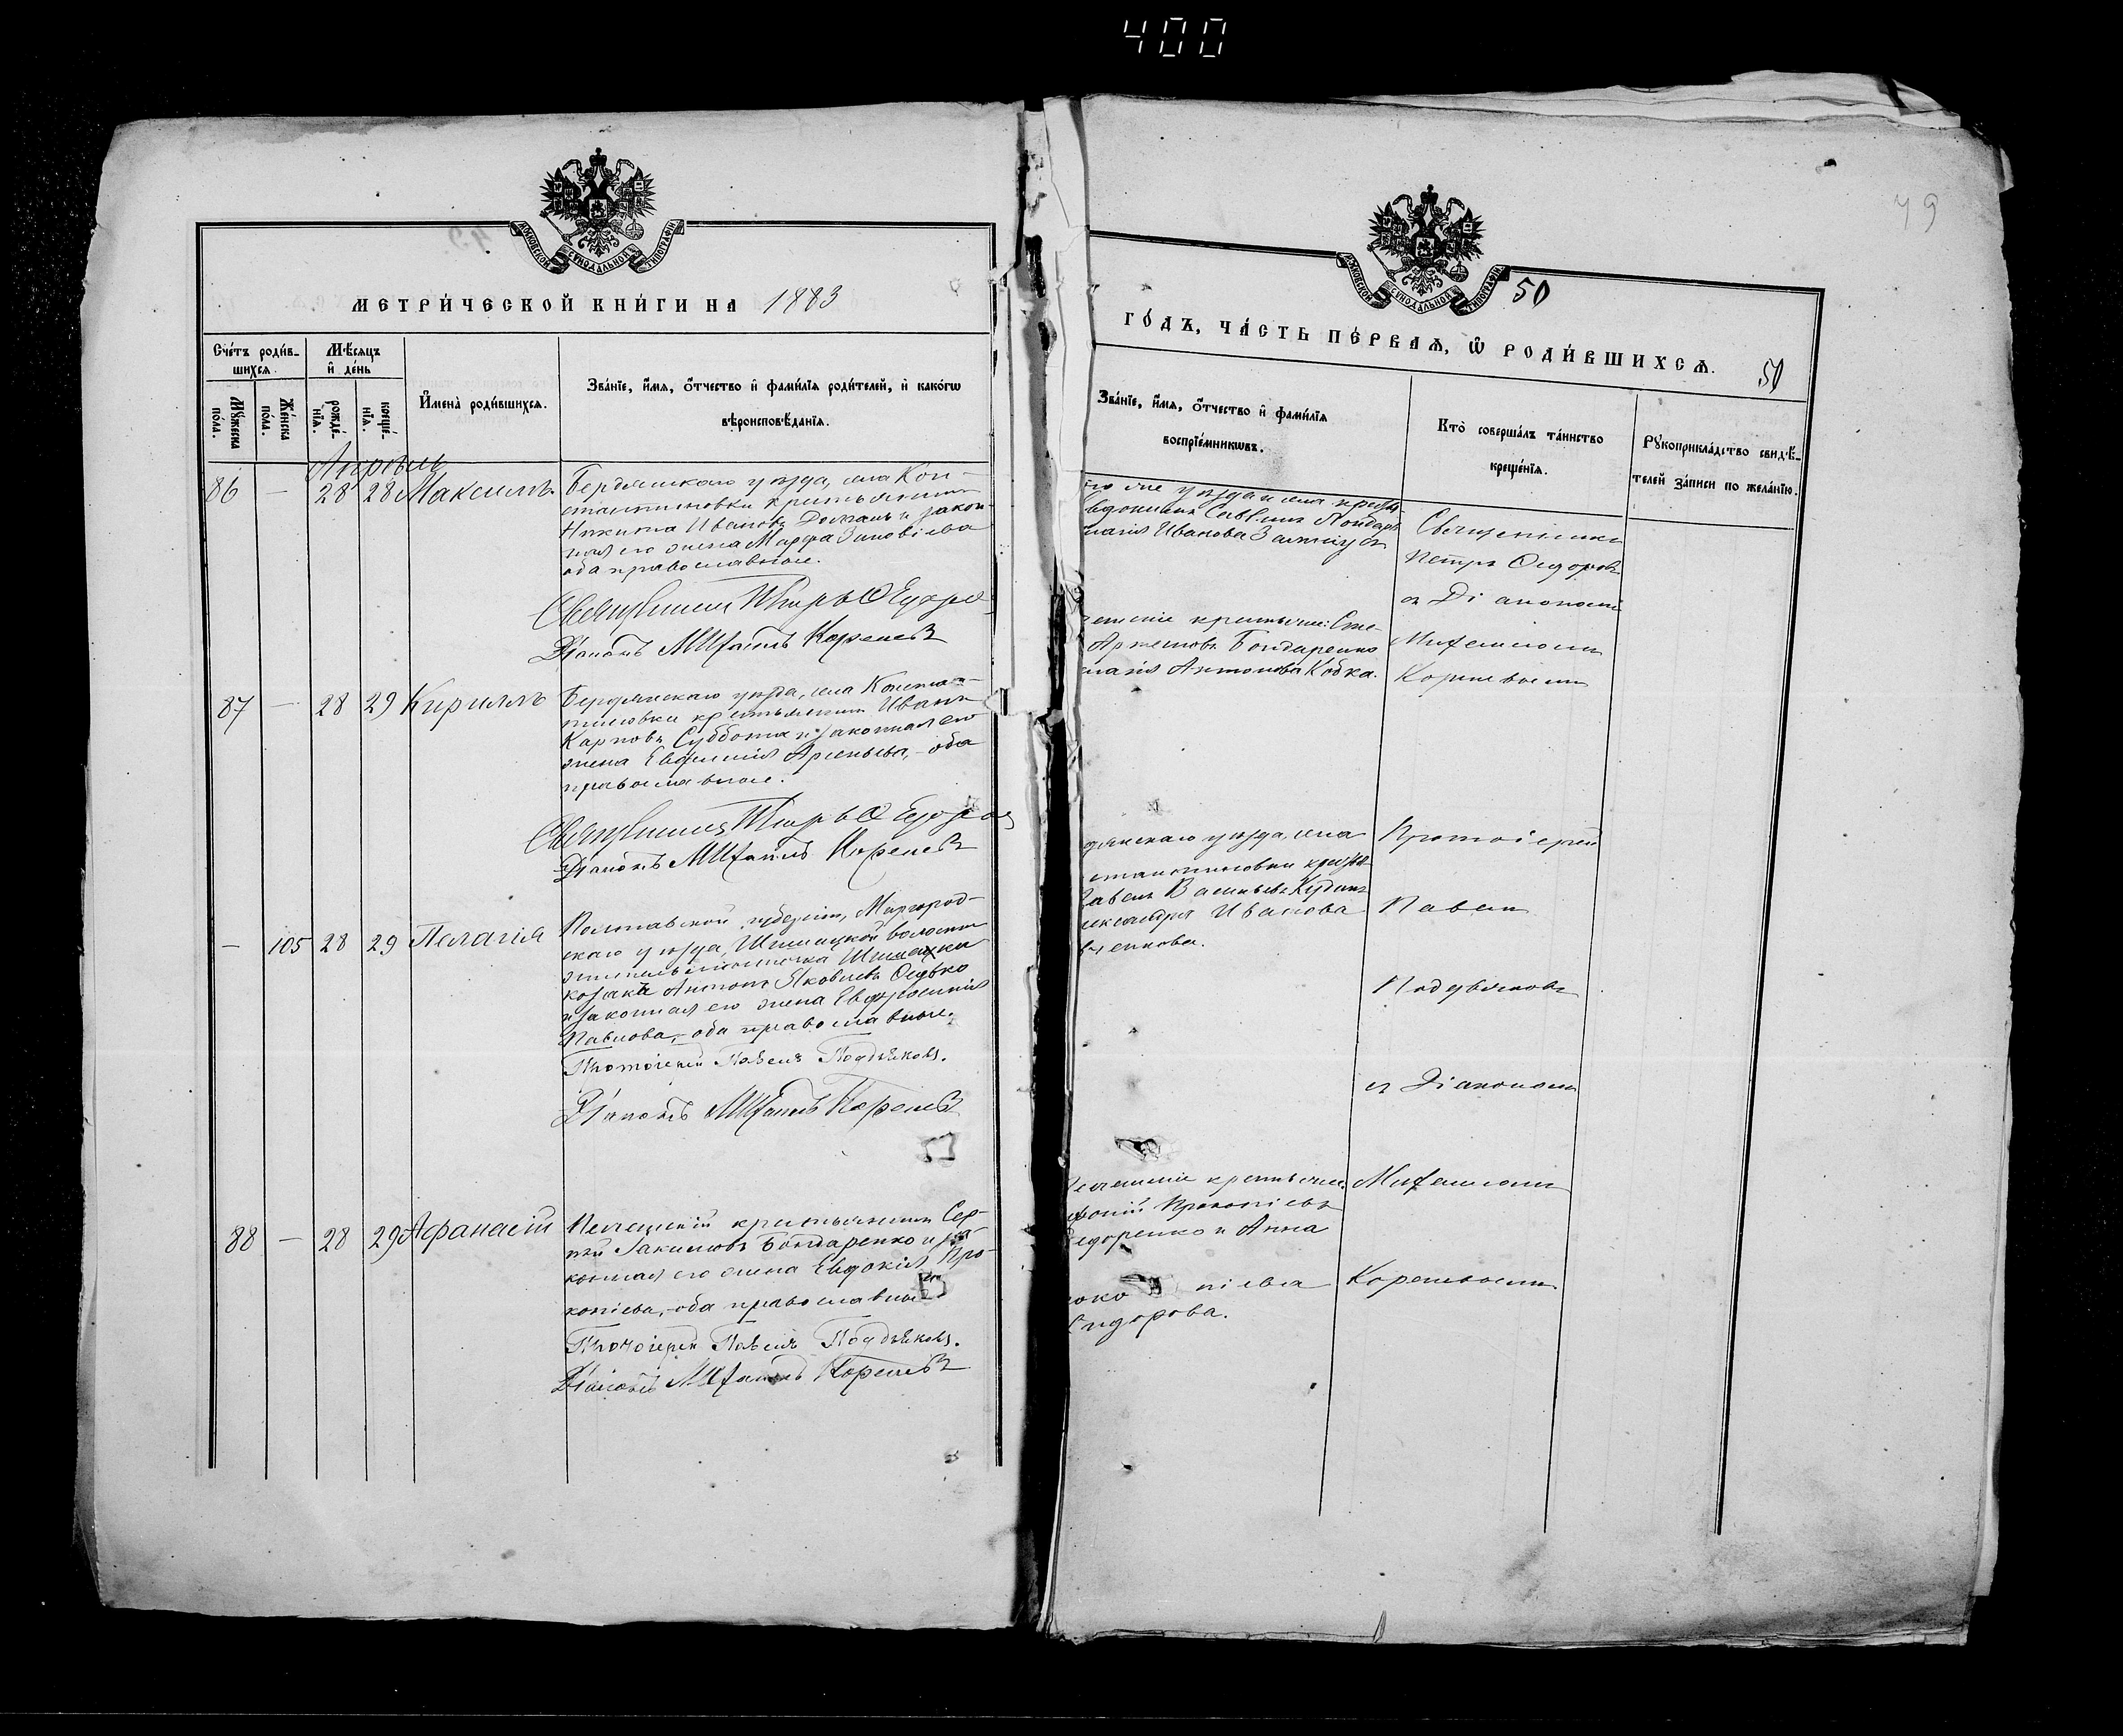 400
МОСКОВСКОЙ СѴНОДАЛЬНОЙ ТИПОГРАФІИ
МЕТРИ́ЧЕСКОЙ КНИ́ГИ НА 1883
Сче́тъ роди́в-
шихсѧ.
Мѣ́сѧцъ
и҆ де́нь
Мꙋ́жеска
по́ла.
Же́нска
по́ла.
рожде́-
нїѧ.
креще́-
нїѧ.
И҆мена̀ роди́вшихсѧ.
Зва́нїе, и҆́мѧ, ѻ҆́тчество и҆ фами́лїѧ роди́телей, и҆ како́гѡ
вѣроисповѣ́данїѧ.
Апрѣль
86 — 28 28 Максимъ
Бердянскаго уѣзда, села Кон-
стантиновки крестьянинъ
Никита Ивановъ Должанъ и закон-
ная его жена Марфа Зиновіева
оба православные.
Священникъ Петръ
Діаконъ Михаилъ Кореневъ
87 — 28 29 Кириллъ
Бердянскаго уѣзда, села Констан-
тиновки крестьянинъ Иванъ
Карповъ Суббота и законная его
жена Евфимія Арсеньева, оба
православные.
Священникъ Петръ
Діаконъ Михаилъ Кореневъ
— 105 28 29 Пелагія
Полтавской губерніи, Миргород-
скаго уѣзда, Шишацкой волости
жители мѣстечка Шишаки
козакъ Антонъ Яковлевъ Сидько
и законная его жена Евфросинія
Павлова, оба православные.
Протоіерей Павелъ Поддьяковъ.
Діаконъ Михаилъ Кореневъ
88 — 28 29 Афанасій
Мелешкій крестьянинъ Сер-
гій Іакимовъ Бондаренко и за-
конная его жена Евдокія Про-
копіева, оба православные
Протоіерей Павелъ Поддьяковъ.
Діаконъ Михаилъ Кореневъ
79
МОСКОВСКОЙ СѴНОДАЛЬНОЙ ТИПОГРАФІИ
50
ГО́ДЪ, ЧА́СТЬ ПЕ́РВАѦ, Ѡ҆ РОДИ́ВШИХСѦ.
50
Зва́нїе, и҆́мѧ, ѻ҆́тчество и҆ фами́лїѧ
воспрїе́мникѡвъ.
Кто̀ соверша́лъ та́инство
креще́нїѧ.
Рꙋкоприкла́дство свидѣ́-
телей за́писи по жела́нїю.
го же уѣзда и села крестья
Савинъ Кондар
Иванова
Священникъ
Петръ
съ Діакономъ
Михаиломъ
Кореневымъ
крестьяне: Сте-
Артемовъ Бондаренко
Антонова Кобка.
дянскаго уѣзда, села
стантиновки крестья
Павелъ Васильевъ Кудинъ
лександра Иванова
Протоіерей
Павелъ
Поддьяковъ
съ Діакономъ
Михаиломъ
Кореневымъ
крестьяне
Прокопіевъ
едоренко и Анна
роко піева
Сидорова.